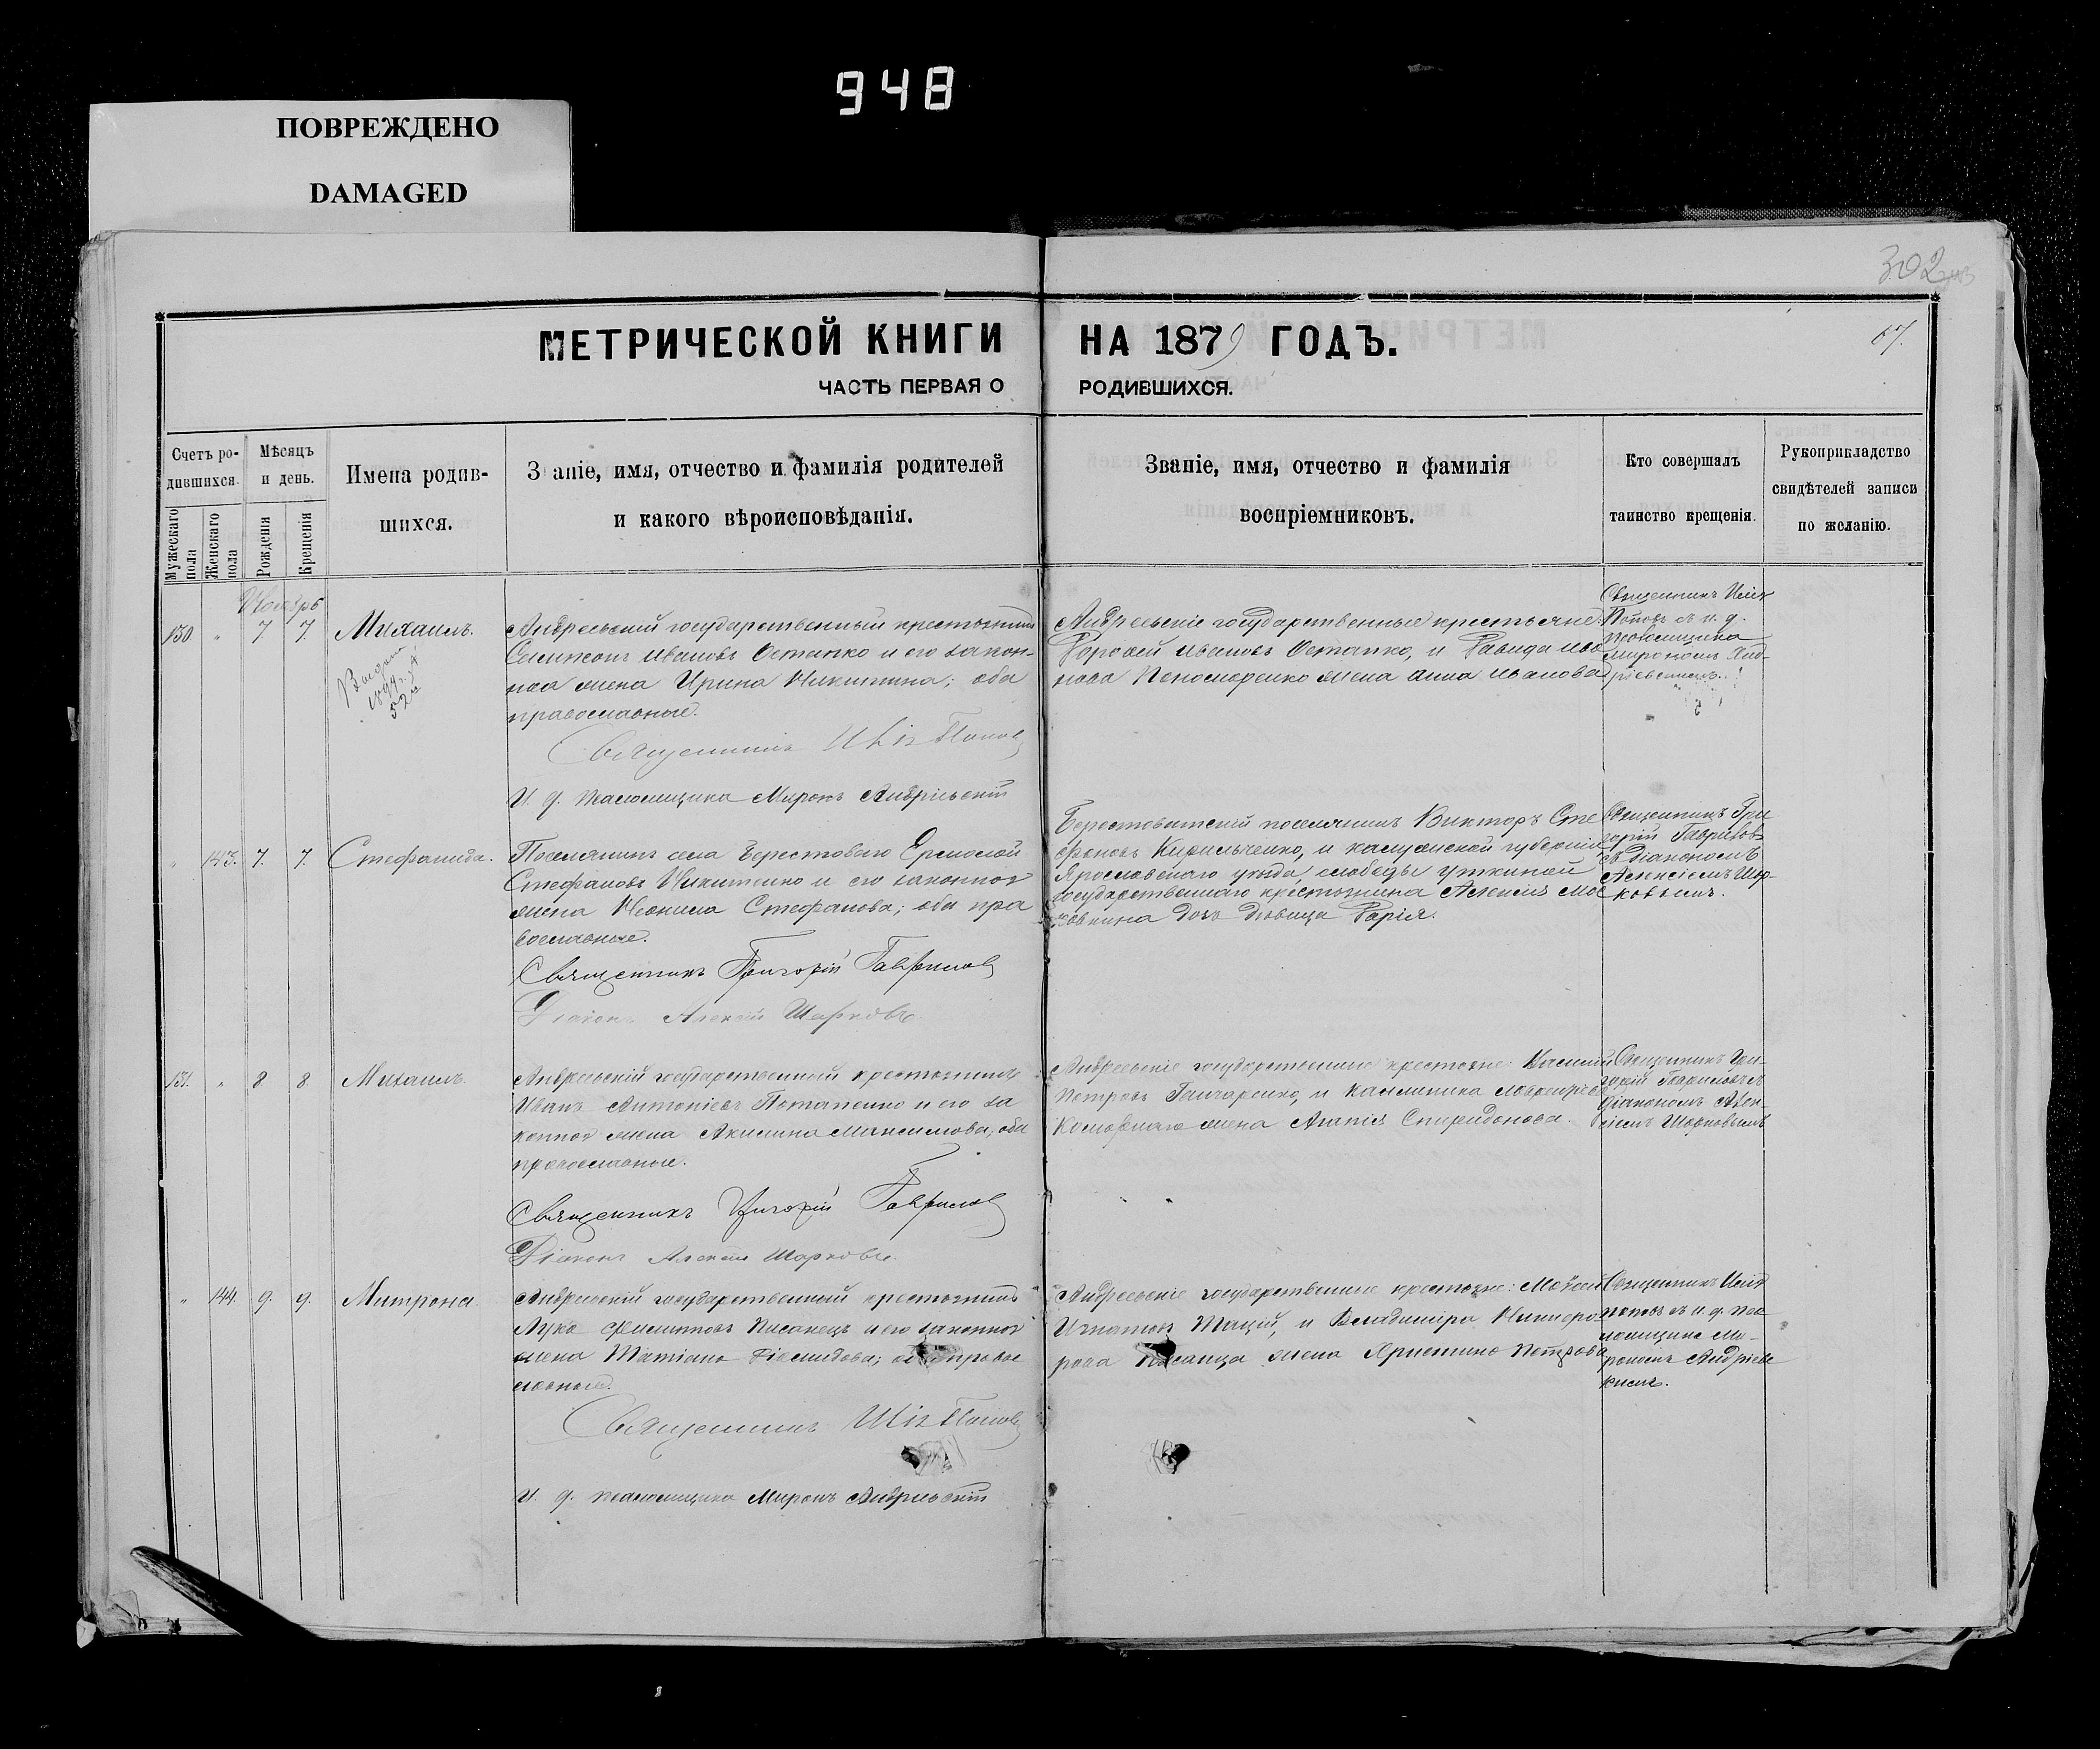 948
ПОВРЕЖДЕНО
DAMAGED
302
МЕТРИЧЕСКОЙ КНИГИ НА 1879 ГОДЪ.
67.
ЧАСТЬ ПЕРВАЯ О РОДИВШИХСЯ.
Счетъ ро-
дившихся.
Мужескаго пола
Женскаго пола
Мѣсяцъ
и день.
Рожденія
Крещенія
Имена родив-
шихся.
Званіе, имя, отчество и фамилія родителей
и какого вѣроисповѣданія.
Званіе, имя, отчество и фамилія
воспріемниковъ.
Кто совершалъ
таинство крещенія.
Рукоприкладство
свидѣтелей записи
по желанію.
Ноябрь
130 " 7 7. Михаилъ.
Андреевскій государственный крестьянинъ
Симеонъ Ивановъ Остапко и его закон-
ная жена Ирина Никитина; оба
православные.
Священникъ Попов
И. д. псаломщика Миронъ Андріевскій
Андреевскіе государственные крестьяне:
Ивановъ Остапко, и
Пономаренко жена Анна Иванова
Священникъ
Поповъ съ и. д.
псаломщика
Мирономъ Анд-
ріевскимъ.
" 143. 7. 7. Стефанида.
Поселянинъ села Берестоваго Ермолай
Стефановъ Никитенко и его законная
жена Неонила Стефанова; оба пра
вославные.
Священникъ Григорій Гаврилов
Діаконъ Алексѣй Шарковъ.
Берестовитскій поселянинъ Викторъ Сте
фановъ Кирильченко, и калужской губерніи
Ярославскаго уѣзда, слободы Уткиной
государственнаго крестьянина Алексія Мос
ковкина дочь дѣвица Дарія.
Священникъ Гри
горій Гавриловъ
съ діакономъ
Алексіемъ Шар-
ковымъ.
131. " 8 8. Михаилъ.
Андреевскій государственный крестьянинъ
Иванъ Антоніевъ Потапенко и его за
конная жена Акилина Максимова; оба
православные.
Священникъ Григорій Гаврилов
Діаконъ Алексѣй Шарковъ.
Андреевскіе государственные крестьяне:
Петровъ Гончаренко, и Каллиника
жена Агапія Спиридонова.
Священникъ Гри-
горій Гавриловъ съ
діакономъ Алек-
сіемъ Шарковымъ
" 144. 9. 9. Матрона.
Андреевскій государственный крестьянинъ
Лука Писанецъ и его законная
жена Татіана Діомидова; оба правос
лавные.
Священникъ Попов
И. д. псаломщика Миронъ Андріевскій
Андреевскіе государственные крестьяне: Моисей
Игнатовъ Тацій, и Владиміра Никифо
рова Писанца жена Петрова
Священникъ
Поповъ съ и. д. пса
ломщика Ми-
рономъ Андріевс
кимъ.